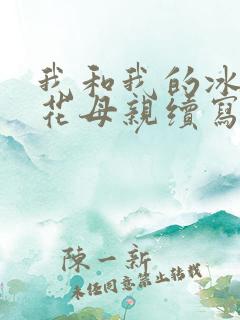 我和我的冰
花母親續寫
陳一新
未经同意禁止转载